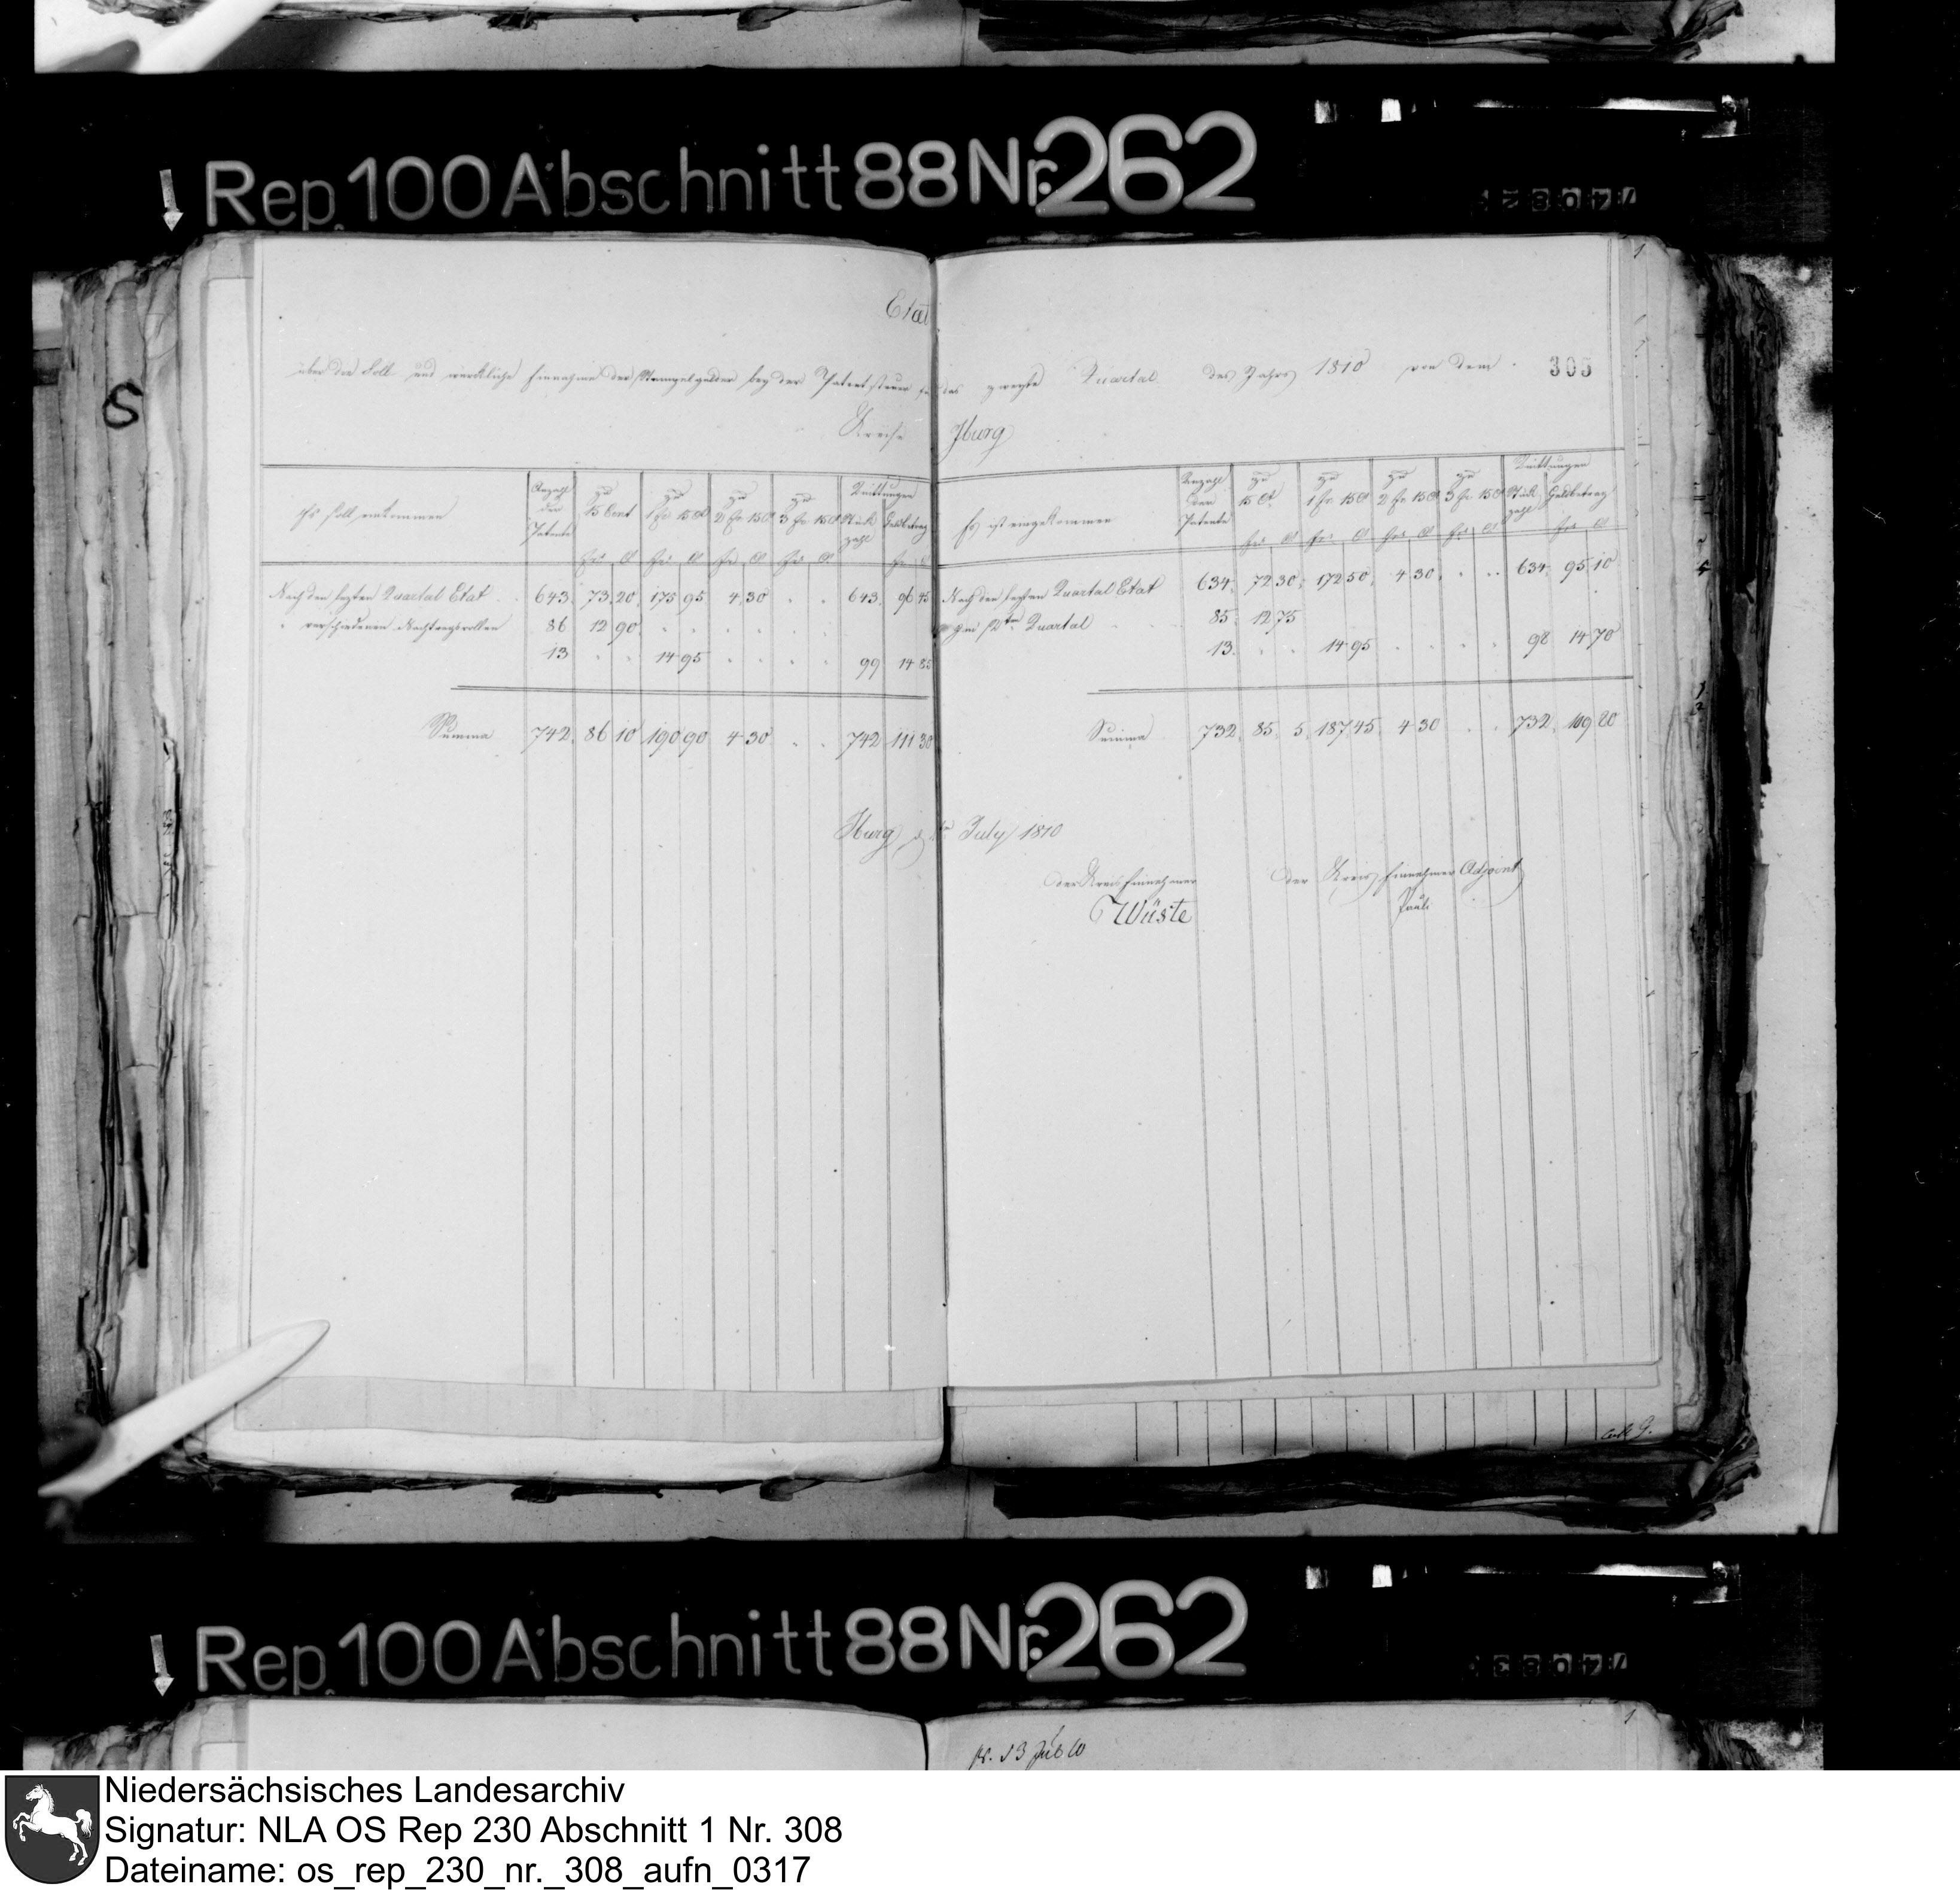 Rep. 100 Abschnitt 88 Nr. 262
Etat
über die Soll und wirkliche Einnahme der Stempelgelder bey der Patentsteuer für das zweyte Quartal des Jahrs 1810 von dem
305
Kreise Iburg
Es soll einkommen
Anzahl der Patente
zu 15 Cent
zu 1 fr. 15 Ct
zu 2 fr. 15 Ct
zu 3 fr. 15 Ct
Quittungen
Stück zahl
Geldbetrag
Nach den letzten Quartal Etat 643 73 20 175 95 4 30 643 96 45
" verschiedenen Nachtragsrollen 86 12 90
13 14 95 99 14 85
Summa 742 86 10 190 90 4 30 742 111 30
Es ist eingekommen
Anzahl der Patente
zu 15 Ct
zu 1 fr. 15 Ct
zu 2 fr. 15 Ct
zu 3 fr. 15 Ct
Quittungen
Stück zahl
Geldbetrag
Nach den letzten Quartal Etat 634 72 30 172 50 4 30 634 95 10
2ten Quartal 85 12 75
13 14 95 98 14 70
Summa 732 85 5 187 45 4 30 732 109 80
Iburg July 1810
Der Kreis Einnehmer
Wüste
Der Kreis Einnehmer Adjoint
Pauli
Rep. 100 Abschnitt 88 Nr. 262
Niedersächsisches Landesarchiv
Signatur: NLA OS Rep 230 Abschnitt 1 Nr. 308
Dateiname: os_rep_230_nr._308_aufn_0317